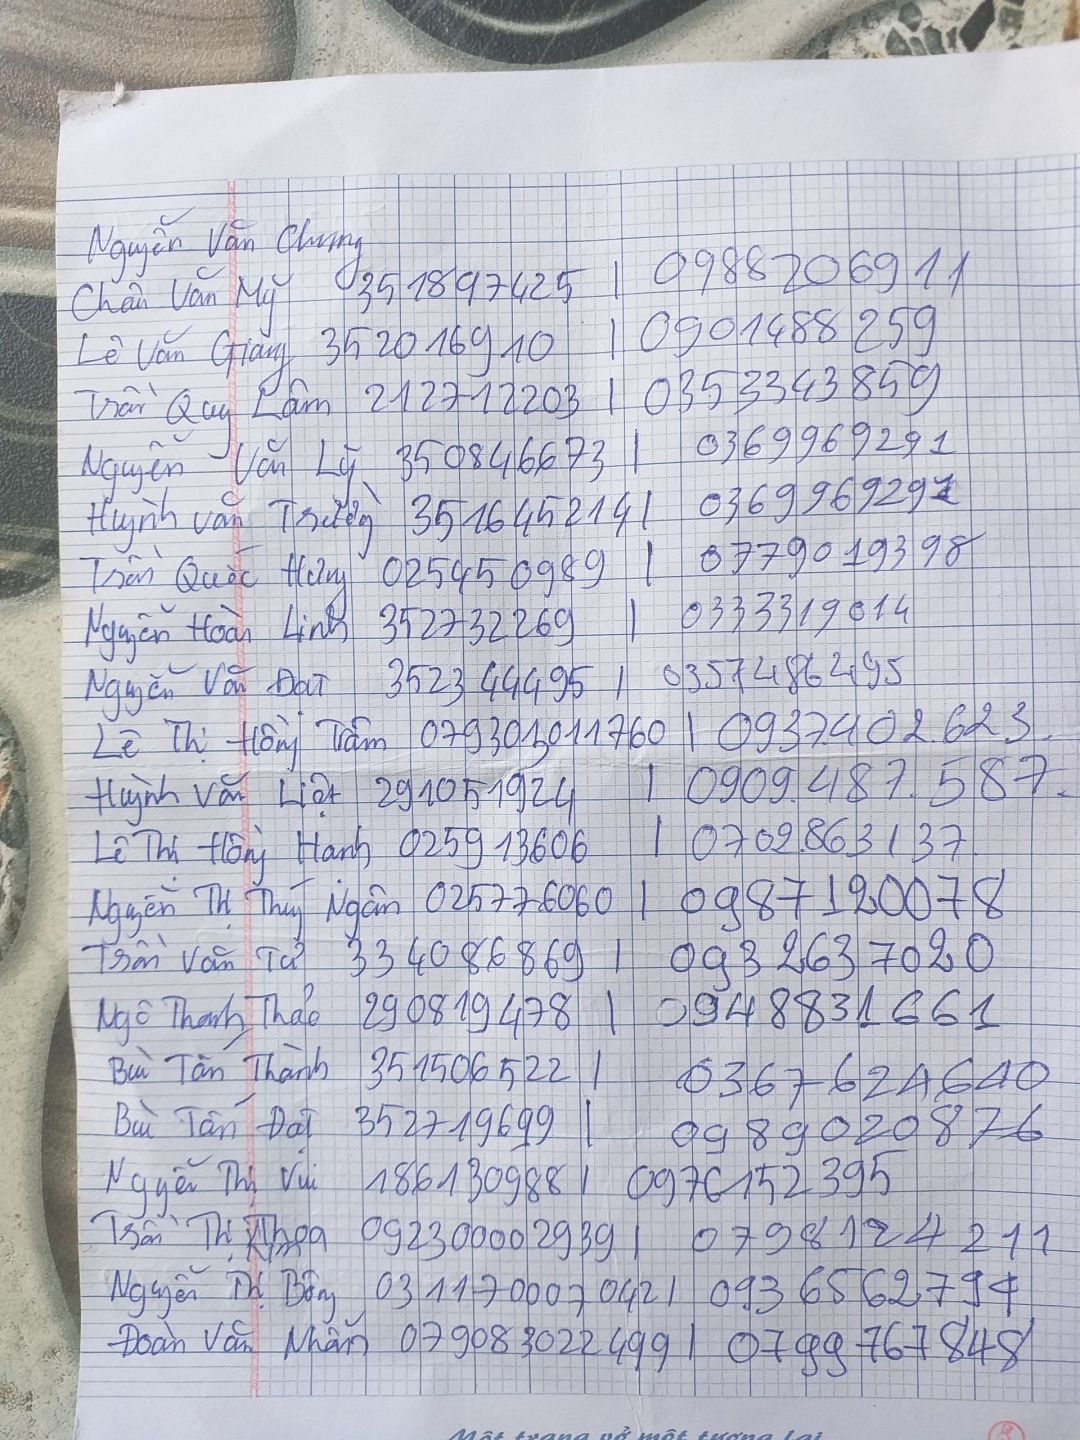 Nguyễn Văn Chung
Chân Văn Mỹ 351897425 | 0988206911
Lê Văn Giang 352016910 | 0901488259
Trần Quy Lâm 212712203 | 0353343859
Nguyễn Văn Lý 350846673 | 0369969291
Huỳnh Văn Trường 351645214 | 0369969291
Trần Quốc Hưng 025450989 | 0779019398
Nguyễn Hoàn Linh 352732269 | 0333319014
Nguyễn Văn Đạt 352344495 | 0357486495
Lê Thị Hồng Trâm 079303011760 | 0937.402.623.
Huỳnh Văn Liệt 291051924 | 0909.487.587.
Lê Thị Hồng Hạnh 025913606 | 0702.863137
Nguyễn Thị Thúy Ngân 025776060 | 0987120078
Trần Văn Tư 334086869 | 0932637020
Ngô Thanh Thảo 290819478 | 0948831661
Bùi Tấn Thành 351506522 | 0367624640
Bùi Tấn Đạt 352719699 | 0989020876
Nguyễn Thị Vui 186130988 | 0976152395
Trần Thị Thoa 092300002939 | 0798124211
Nguyễn Thị Bông 031170007042 | 0936562794
Đoàn Văn Nhẫn 079083022499 | 0799767848
Một trang vở một tương lai